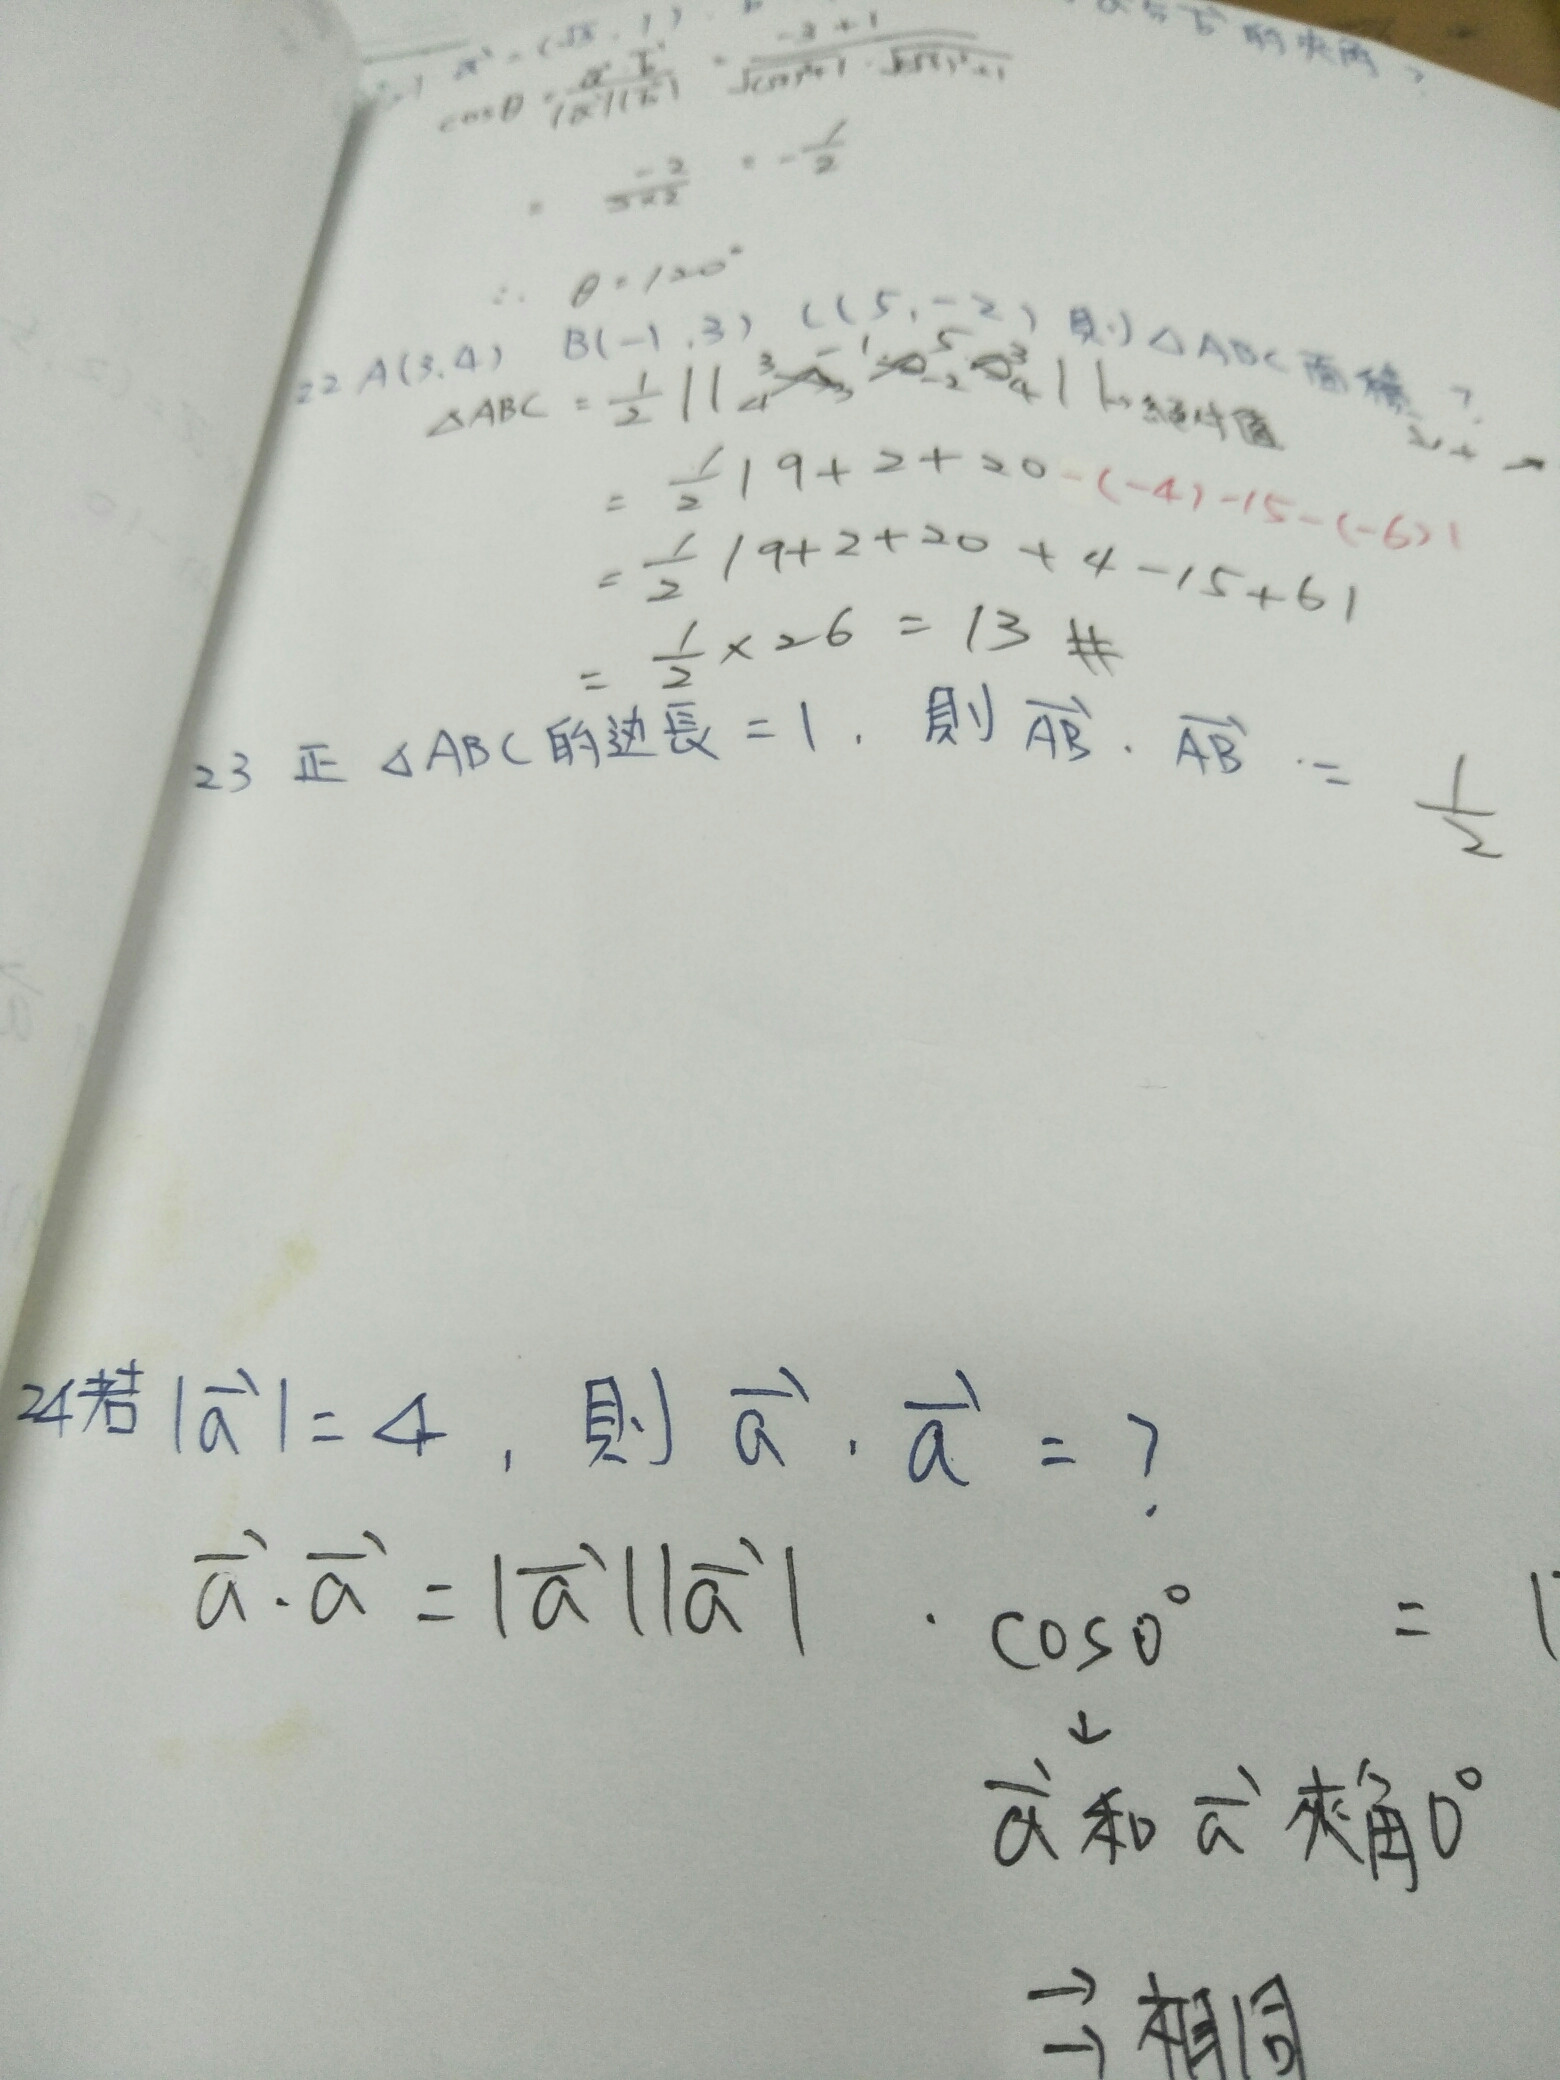 a⃗ = (√3, 1)
的夾角?
cosθ = a⃗·b⃗ / |a⃗||b⃗| = -3+1 / √(√3)²+1 · √(-√3)²+1
= -2 / 2×2 = -1/2
∴ θ=120°
22 A(3.4) B(-1,3) C(5,-2) 則△ABC面積?
△ABC = 1/2 || 3 4 -1 3 5 -2 3 4 || → 絕對值
= 1/2 | 9+2+20-(-4)-15-(-6)|
= 1/2 | 9+2+20+4-15+6|
= 1/2 × 26 = 13 #
23 正△ABC的边長=1, 則 AB⃗ · AB⃗ = 1/2
24若|a⃗|=4, 則 a⃗ · a⃗ = ?
a⃗·a⃗ = |a⃗||a⃗| · cos0° =
↓
a⃗ 和 a⃗ 夾角0°
→
→ 相同